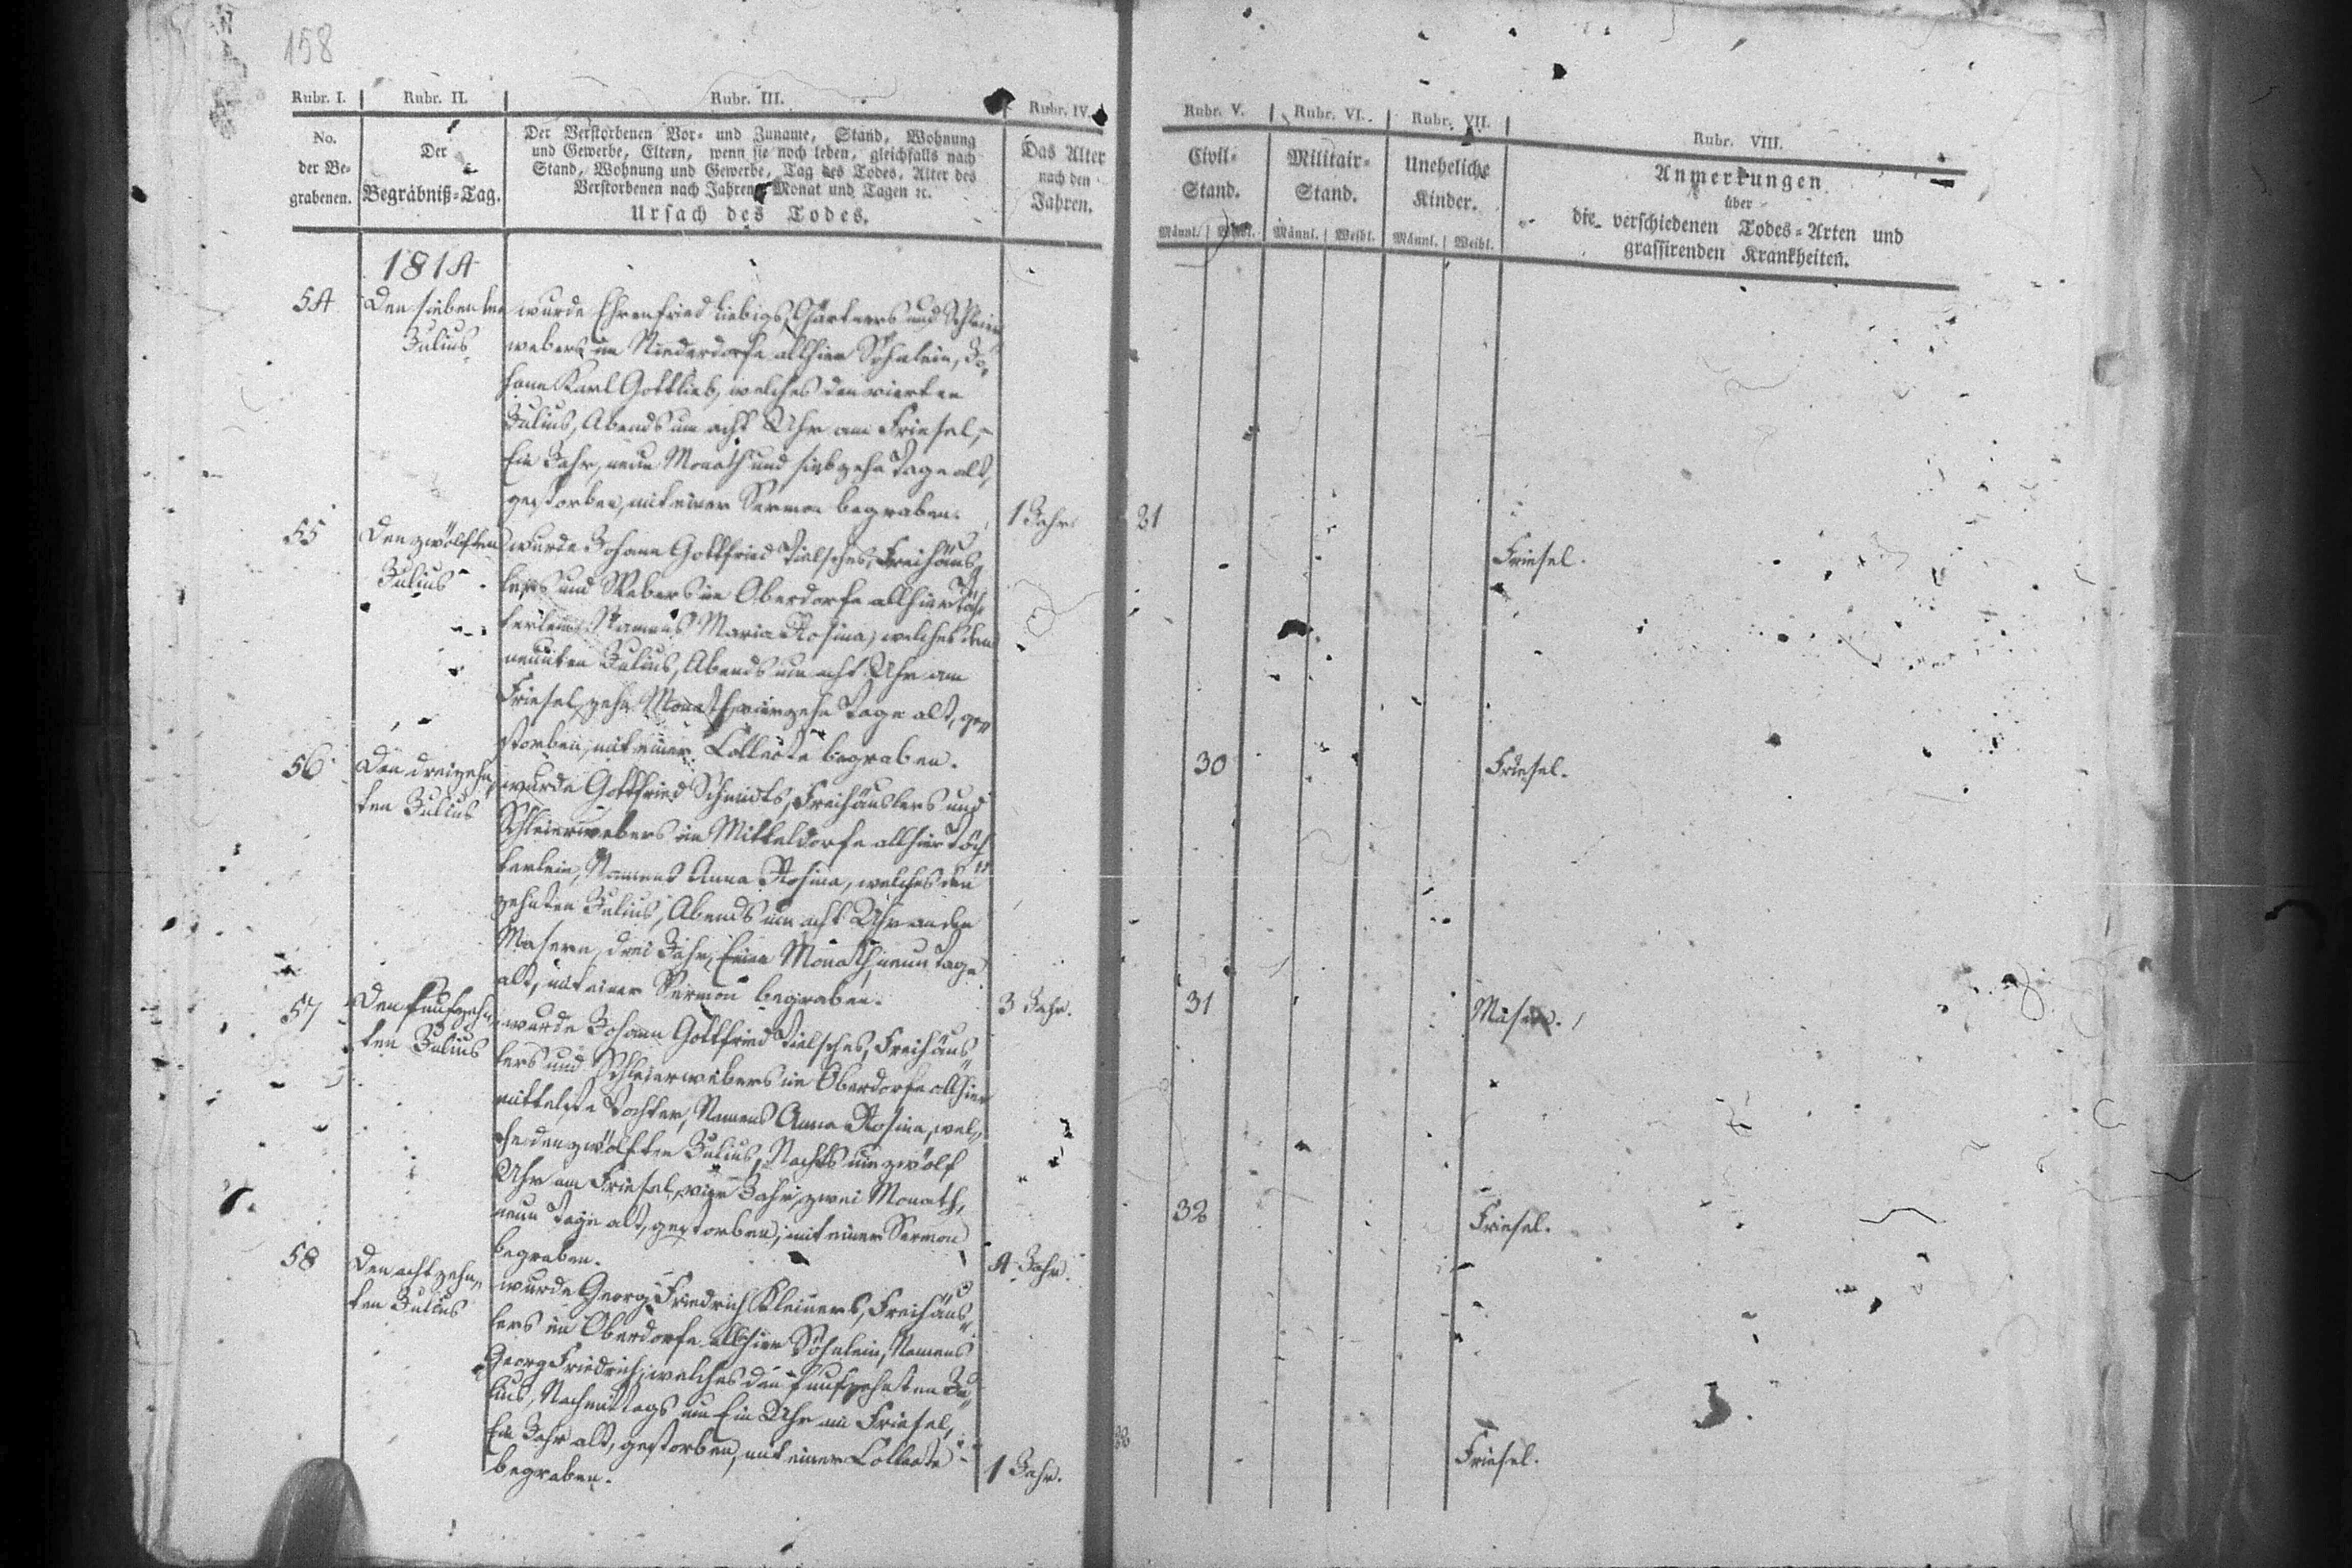 158
Rubr. I. Rubr. II. Rubr. III. Rubr. IV. Rubr. V. Rubr. VI. Rubr. VII. Rubr. VIII.
No.
der Be-
grabenen.
Der
Begräbniß-Tag.
Der Verstorbenen Vor- und Zuname, Stand, Wohnung
und Gewerbe, Eltern, wenn sie noch leben, gleichfalls nach
Stand, Wohnung und Gewerbe, Tag des Todes, Alter des
Verstorbenen nach Jahren, Monat und Tagen ꝛc.
Ursach des Todes.
Das Alter
nach den
Jahren.
Civil-
Stand.
Männl. Weibl.
Militair-
Stand.
Männl. Weibl.
Uneheliche
Kinder.
Männl. Weibl.
Anmerkungen
über
die verschiedenen Todes-Arten und
grassirenden Krankheiten.
1814
54
Den siebenten
Julius
wurde Ehrenfried Liebigs, Gärtners und Schleier
webers im Niederdorfe allhier Söhnlein, Jo-
hann Karl Gottlieb, welches den vierten
Julius, Abends um acht Uhr am Friesel,
Ein Jahr, neun Monath und siebzehn Tage alt,
gestorben, mit einer Sermon begraben.
1 Jahr.
21
Friesel.
55
Den zwölften
Julius
wurde Johann Gottfried Tielsches, Freihäus-
lers und Webers im Oberdorfe allhier Töch-
terlein, Namens Maria Rosina, welches den
neunten Julius, Abends um acht Uhr am
Friesel, zehn Monath, vierzehn Tage alt, ge-
storben, mit einer Collecte begraben.
30
Friesel.
56
Den dreizehn-
ten Julius
wurde Gottfried Schmidts, Freihäuslers und
Schleierwebers im Mitteldorfe allhier Töch-
terlein, Namens Anna Rosina, welches den
zehnten Julius, Abends um acht Uhr an den
Masern, drei Jahr, Einen Monath, neun Tage
alt, mit einer Sermon begraben.
3 Jahr.
31
Masern.
57
Den funfzehn-
ten Julius
wurde Johann Gottfried Tielsches, Freihäus-
lers und Schleierwebers im Oberdorfe allhier
mittelste Tochter, Namens Anna Rosina, wel-
che den zwölften Julius, Nachts um zwölf
Uhr am Friesel, vier Jahr, zwei Monath,
neun Tage alt, gestorben, mit einer Sermon
begraben.
4 Jahr.
32
Friesel.
58
Den achtzehn-
ten Julius
wurde Georg Friedrich Kleiners, Freihäus-
lers im Oberdorfe allhier Söhnlein, Namens
Georg Friedrich, welches den funfzehnten Ju-
lius, Nachmittags um Ein Uhr am Friesel,
Ein Jahr alt, gestorben, mit einer Collecte
begraben.
1 Jahr.
Friesel.